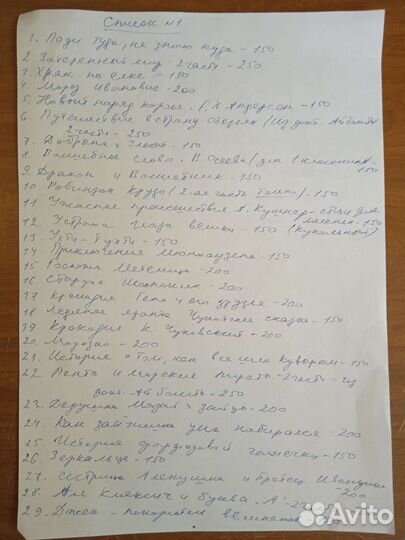 Список №1
1. Поди туда, не знаю куда - 150
2. Затерянный мир - 2 части - 250
3. Хряк на елке - 150
4. Мороз Иванович - 200
5. Новый наряд короля. Г.Х Андерсон - 150
6. Путешествие в страну обезьян /Из докт. Айболита/
2 части - 250
7. Добрыня и Змей - 150
8. Волшебное слово. В. Осеева /для 1 классника - 150
9. Дракон и Волшебник - 150
10. Робинзон Крузо (2-ая часть только) - 150
11. Ужасное происшествие А. Кушнер - стихи для
маленьк - 150
12. Устами глаза велики - 150 (Кукольный)
13. Ухти - Тухти - 150
14. Приключение Мюнхаузена - 150
15. Госпожа Метелица - 200
16. Старуха Шапокляк - 200
17. Крокодил Гена и его друзья - 200
18. Чукотские сказки - 150
19. Крокодил К. Чуковский - 200
20. Морозко - 200
21. История о том, как все шло кувырком - 150
22. Пента и морские пираты - 2 части - из
докт. Айболита - 250
23. Дедушка Мазай и зайцы - 200
24. Как зайчишка ума набирался - 200
25. История фарфоровой чашечки - 150
26. Зеркальце - 150
27. Сестрица Аленушка и братец Иванушка
- 200
28. Ал Клексич и буква "А"
29. Джек - покоритель великанов
Avito